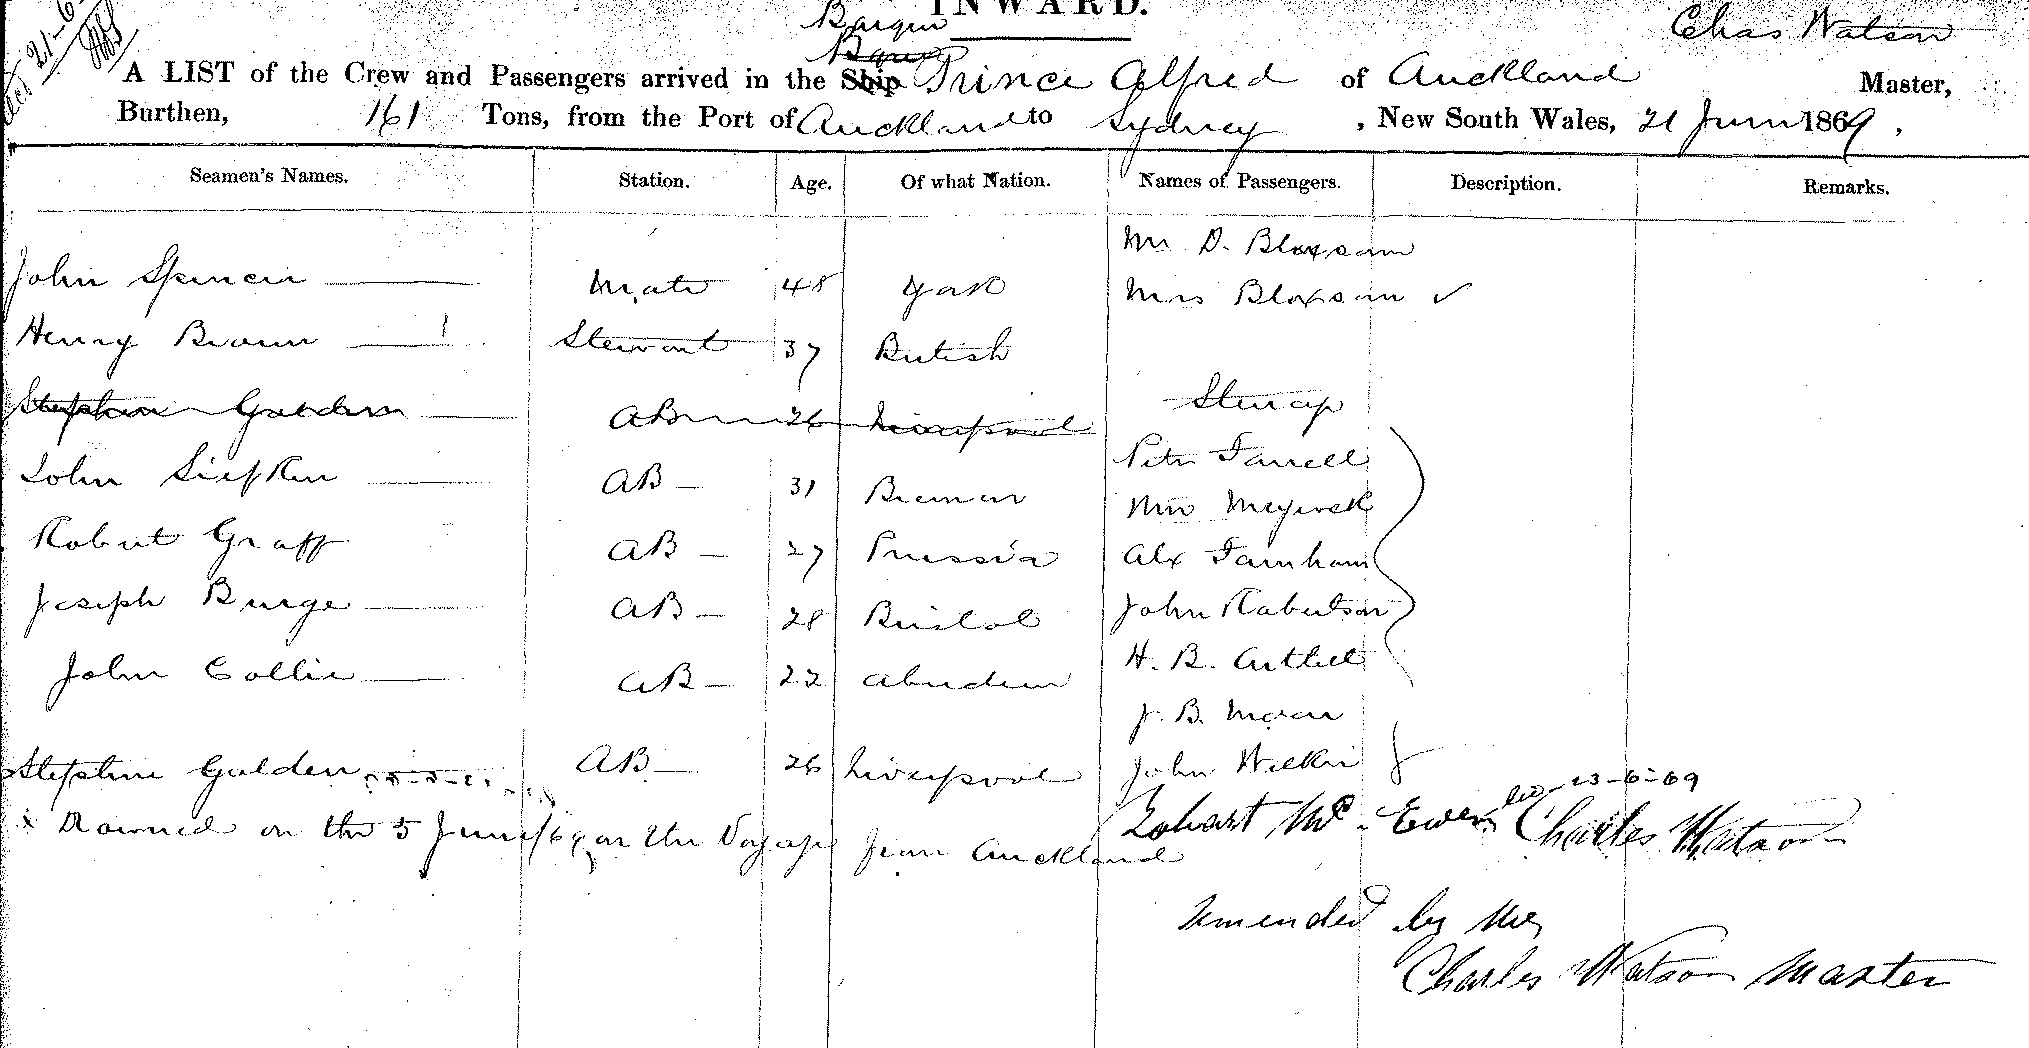 INWARD.
Barque
Chas Watson
A LIST of the Crew and Passengers arrived in the Ship Prince Alfred of Auckland Master,
Burthen, 161 Tons, from the Port of Auckland to Sydney, New South Wales, 21 June 1869.
Seamen's Names. Station. Age. Of what Nation. Names of Passengers. Description. Remarks.
Mr D. Bloxsom
John Spencer Mate 48 York Mrs Bloxsom
Henry Brown Steward 37 British
Stephen Golden AB 26 Liverpool Steerage
John Siefken AB 31 Bremen Peter Farrell
Robert Graff AB 27 Prussia Alx Farnham
Joseph Burge AB 28 Bristol John Robertson
John Collie AB 22 Aberdeen H. B.
J. B. Moran
Stephen Golden AB 26 Liverpool John Wilkin
23-6-69
x Drowned on the 5 June/69 on the Voyage from Auckland
Mc Ewen Charles Watson
Amended by me
Charles Watson Master